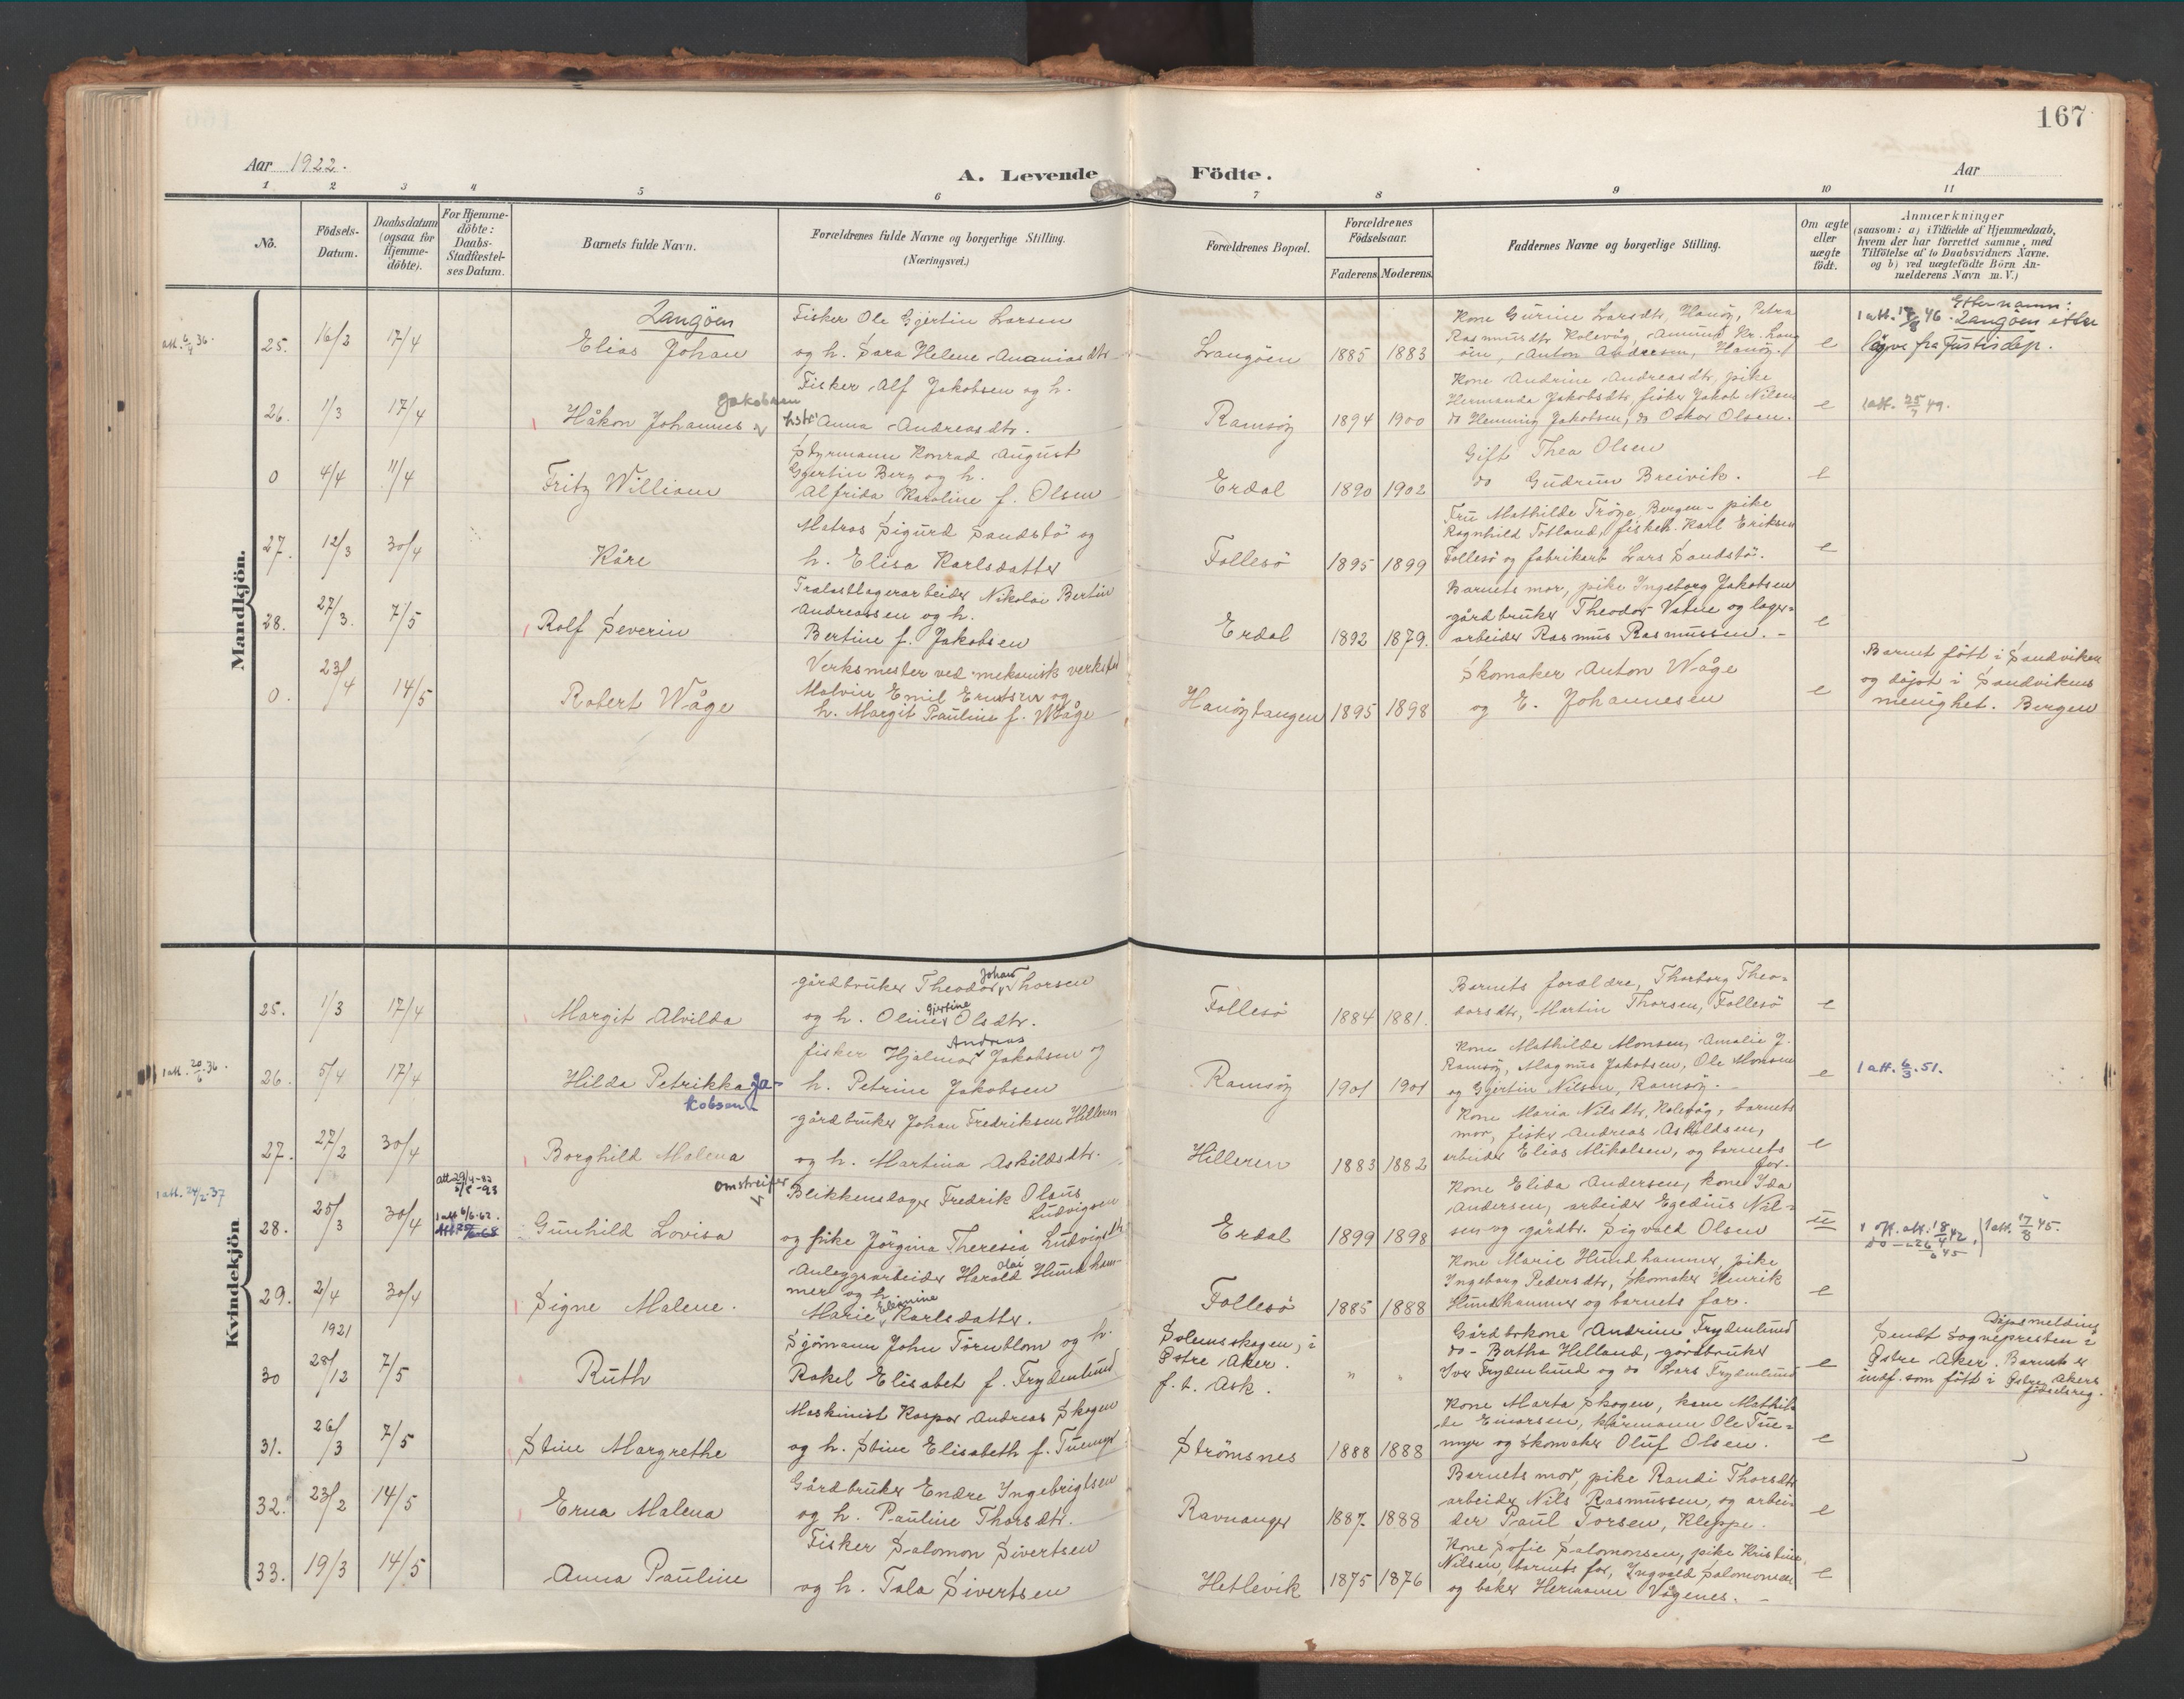 167
Aar 1922.
A. Levende
Födte.
Aar
1 2 3 4 5 6 7 8 9 10 11
No.
Födsels-
Datum.
Daabsdatum
(ogsaa for
Hjemme-
döbte).
For Hjemme-
döbte:
Daabs-
Stadfæstel-
ses Datum.
Barnets fulde Navn.
Forældrenes fulde Navne og borgerlige Stilling.
(Næringsvei.)
Forældrenes Bopæl.
Forældrenes
Födselsaar.
Faderens Moderens
Faddernes Navne og borgerlige Stilling.
Om ægte
eller
uægte
födt.
Anmærkninger
(saasom: a) i Tilfælde af Hjemmedaab,
hvem der har forrettet samme, med
Tilföielse af to Daabsvidners Navne.
og b) ved uægtefödte Börn An-
melderens Navn m. V.)
Mandkjön.
att. 6/4 36.
25. 16/2 17/4
Langöen
Elias Johan
Fisker Ole Gjertin Larsen
og h. Sara Helene Ananiasdtr.
Langöen 1885 1883
Kone Gurine Larsdtr, Hanöy, Petra
Rasmusdtr Kolevåg, Amund Kr. Lang
öen, Anton Andersen, Hanöy.
e
Etternamn:
Langöen etter
lögve fra Justisdep.
26. 1/3 17/4
Håkon Johannes
Jakobsen
Fisker Alf Jakobsen og h.
hstr Anna Andreasdtr.
Ramsöy 1894 1900
Kone Andrine Andreasdtr, pike
Hermanda Jakobsdtr, fisker Jakob Nilsen
do Henning Jakobsen, do Oskar Olsen.
e
1 att. 25/7 49.
0 4/4 11/4
Fritz William
Styrmann Konrad August
Gjertin Berg og h.
Alfrida Karoline f. Olsen
Erdal 1890 1902
Gift Thea Olsen
do Gudrun Breivik.
e
27. 12/3 30/4
Kåre
Matros Sigurd Sandstö og
h. Elisa Karlsdatter
Follesö 1895 1899
Fru Mathilde Tröye, Bergen - pike
Ragnhild Totland, fisker Karl Eriksen
Follesö og fabrikarb Lars Sandstö.
e
28. 27/3. 7/5
Rolf Severin
Tralastlagerarbeider Nikolai Bertin
Andreassen og h.
Bertine f. Jakobsen
Erdal 1892 1879.
Barnets mor, pike Ingeborg Jakobsen
gårdbruker Theodor Vatne og lager-
arbeider Rasmus Rasmussen. -
e
0. 23/4 14/5
Robert Wåge
Verksmester ved mekanisk verksted
Malvin Emil Erntsen og
h. Margit Pauline f. Wåge
Hanöytangen 1895 1898
Skomaker Anton Wåge
og E. Johannesen
e
Barnet fött i Sandviken
og döpt i Sandvikens
menighet. Bergen
Kvindekjön
25. 1/3 17/4
Margit Alvilda
gårdbruker Theodor Johan Thorsen
og h. Oline Gjertine Olsdtr.
Follesö 1884 1881.
Barnets forældre, Thorborg Theo-
dorsdtr, Martin Thorsen, Follesö
e
1 att. 20/6 36.
26. 5/4 17/4
Hilda Petrikka Ja-
kobsen
fisker Hjalmar Andreas Jakobsen og
h. Petrine Jakobsen
Ramsöy 1901 1901
Kone Mathilde Monsen, Amalie J.
Ramsöy, Magnus Jakobsen, Ole Monsen
og Gjertin Nilsen, Ramsöy. -
e
1 att. 6/3. 51.
27. 27/2 30/4
Borghild Malena
gårdbruker Johan Fredriksen Hilleren
og h. Martina Askildsdtr.
Hilleren 1883 1882
Kone Maria Nilsdtr, Kolevåg, barnets
mor, fisker Andreas Askildsen,
arbeider Elias Mikalsen, og barnets
far.
e
1 att. 24/2.37
28. 25/3 30/4
1 att 6/6.62.
Gunhild Lovisa
omstreifer
Blikkenslager Fredrik Olaus
Ludvigsen
og pike Jörgina Theresia Ludvigsdtr
Erdal 1899 1898
Kone Elida Andersen, kone Ida
Andersen, arbeider Egedius Nil-
sen og gårdbr. Sigvald Olsen
u
1 off. att. 18/4 42.
1 att. 17/8 45.
29. 2/4 30/4
Signe Malene.
Anleggsarbeider Harald Olai Hundham-
mer og h.
Marie Eleanine Karlsdatter.
Follesö 1885 1888
Kone Marie Hundhammer, pike
Ingeborg Pedersdtr, Skomaker Henrik
Hundhammer og barnets far.
e
1921
30 28/12 7/5
Ruth
Sjömann John Törnblom og h.
Rakel Elisabet f. Frydenlund
Solemskogen, i
Östre Aker.
f. t. Ask.
" "
Gårdbrkone Andrine Frydenlund
do - Bertha Helland, gårdbruker
Iver Frydenlund og do Lars Frydenlund
e
Dåpsmelding
Sendt Sognepresten i
Östre Aker. Barnet er
indf. som fött i Östre Akers
födselsreg.
31. 26/3 7/5
Stine Margrethe
Maskinist Kaspar Andreas Skogen
og h. Stine Elisabeth f. Tuemyr
Strömsnes 1888 1888
Kone Marta Skogen, kone Mathil-
de Einarsen, kårmann Ole Tue-
myr og skomaker Oluf Olsen.
e
32. 23/2 14/5
Erna Malena
Gårdbruker Endre Ingebrigtsen
og h. Pauline Thorsdtr.
Ravnanger 1887. 1888
Barnets mor, pike Randi Thorsdtr
arbeider Nils Rasmussen, og arbei-
der Paul Torsen, Kleppe.
e
33. 19/3 14/5
Anna Pauline
Fisker Salomon Sivertsen
og h. Tala Sivertsen
Hetlevik 1875 1876
Kone Sofie Salomonsen, pike Kristine
Nilsen, barnets far, Ingvald Salomonsen
og baker Hermann Vågenes. -
e